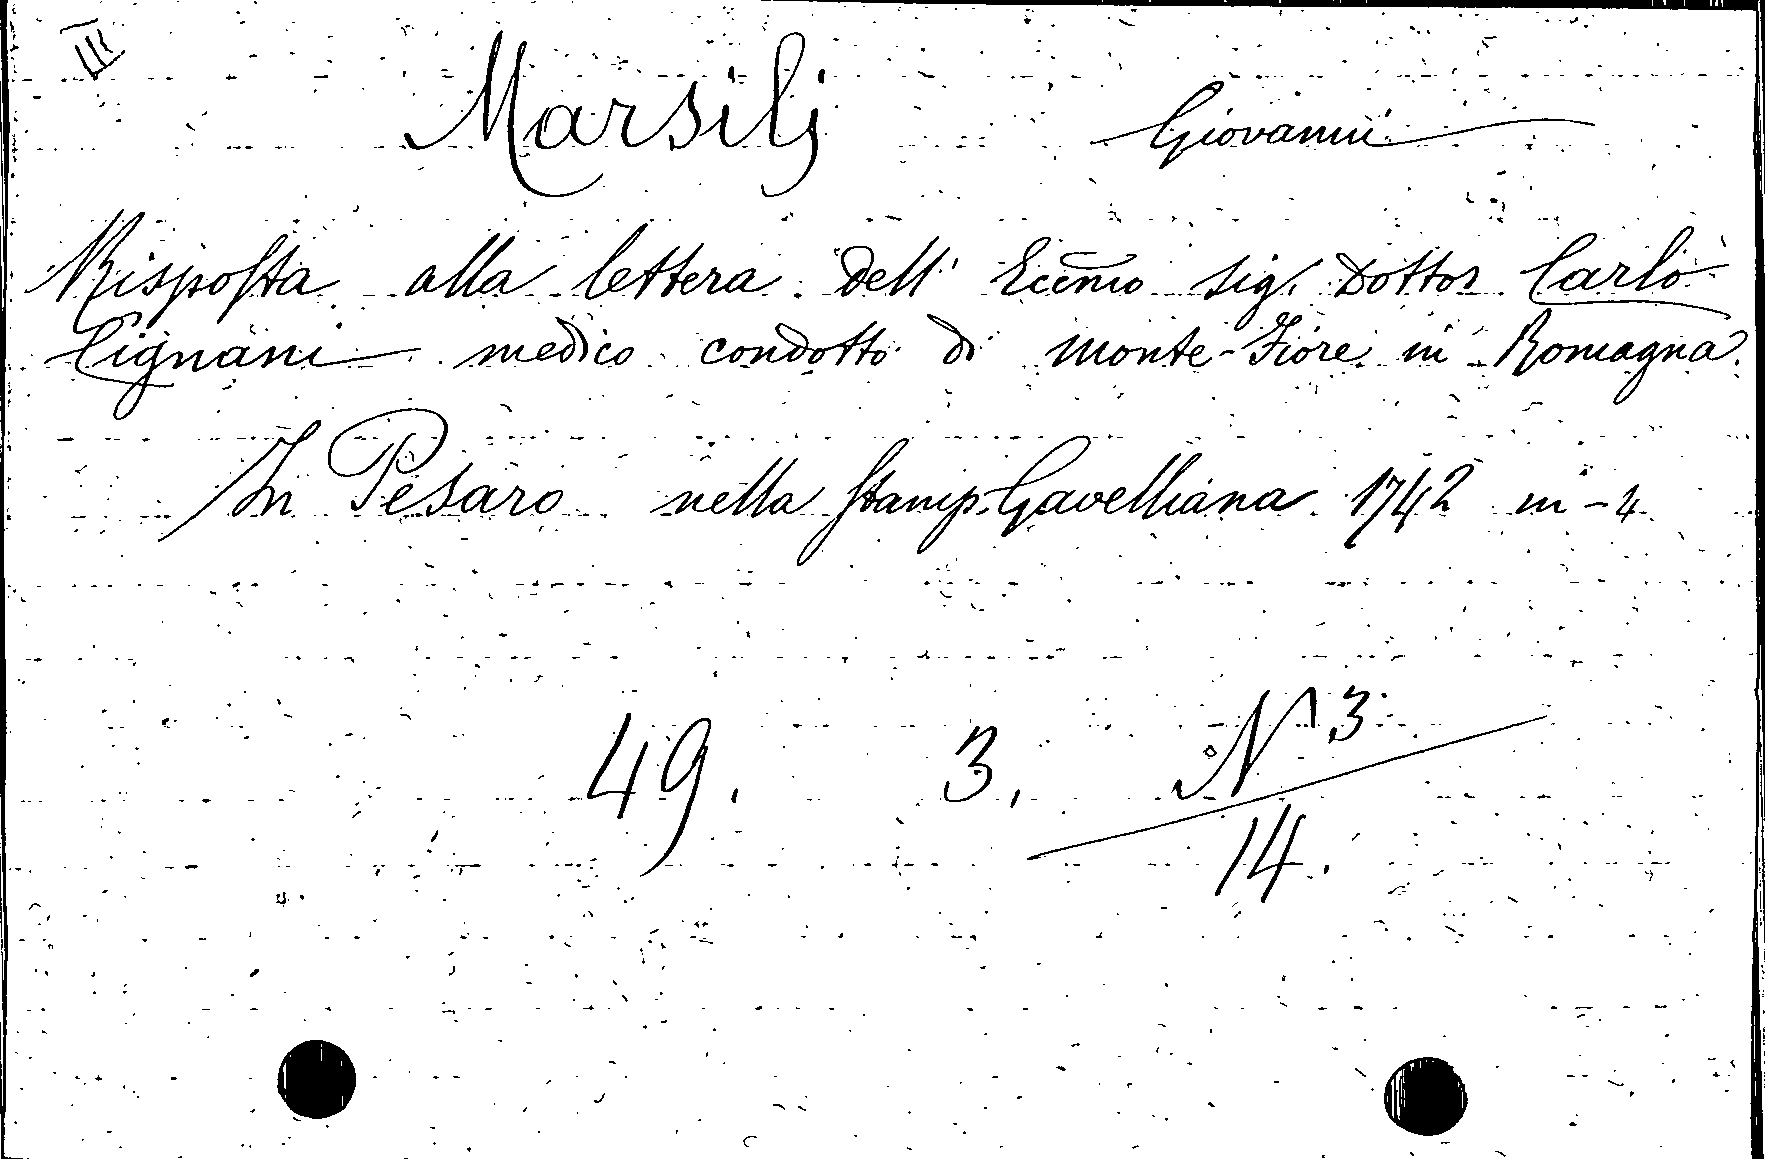 III
Marsilj Giovanni
Risposta alla lettera dell' Eccmo Sig. Dottor Carlo
Cignani medico condotto di monte-Fiore in Romagna.
In Pesaro nella Stamp. Gavelliana 1742 in-4
49. 3. N 3
14.